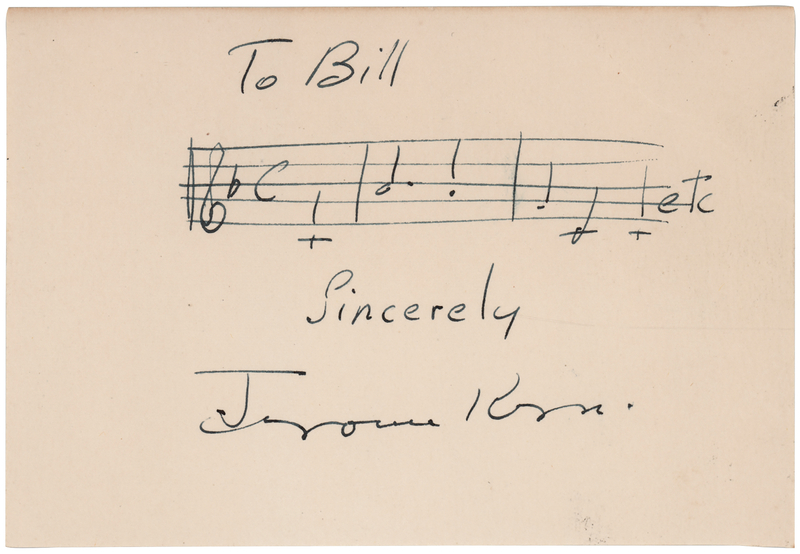 To Bill
etc
Sincerely
Jerome Kern.